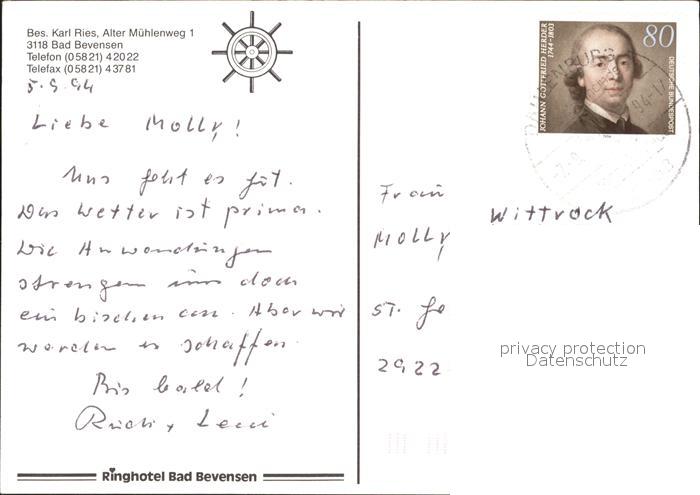 Bes. Karl Ries, Alter Mühlenweg 1
3118 Bad Bevensen
Telefon (05821) 42022
Telefax (05821) 43781
5.9.94
Liebe Molly!
Uns geht es gut.
Das Wetter ist prima.
Die Anwendungen
strengen uns doch
ein bischen an. Aber wir
werden es schaffen.
Bis bald!
Rudi + Leni
Ringhotel Bad Bevensen
JOHANN GOTTFRIED HERDER
1744-1803
80
DEUTSCHE BUNDESPOST
Frau
Wittrock
Molly
privacy protection
Datenschutz